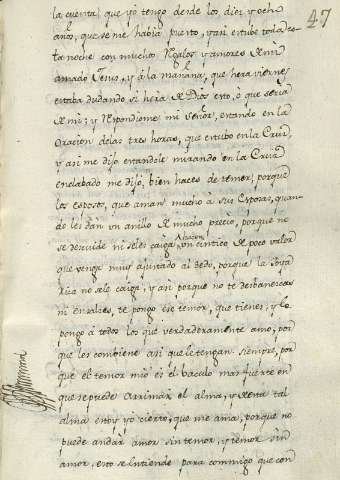 47
la cuenta, que yo tengo desde los diez y ocho
años, que se me había puesto, y así estube toda es-
ta noche con muchos Regalos y amores de mi
amado Jesus, y á la mañana, que hera viernes
estaba dudando si hera de Dios esto, o que seria
de mi; y Respondiome mi señor, estando en la
oracion delas tres horas, que estubo en la Cruz,
y asi me dijo estandole mirando en la Cruz
enclabado me dijo, bien haces de temer, porque
los esposos, que aman mucho á sus Esposas, quan-
do les dan un anillo de mucho precio, porque no
se descuide ni seles caiga, un cintico de poco valor
que venga muy ajustado al dedo, porque la Joya
rica no sele caiga, y asi porque no te desbanezcas
ni ensalzes, te pongo ese temor, que tienes, y lo
pongo á todos los que verdaderamente amo, por
que les combiene asi que le tengan siempre, por
que el temor mio es el baculo mas fuerte en
que sepuede arrimar el alma, y desta tal
alma estoy yo cierto, que me ama, porque no
puede andar amor sin temor, y temor sin
amor, esto se entiende para commigo que con